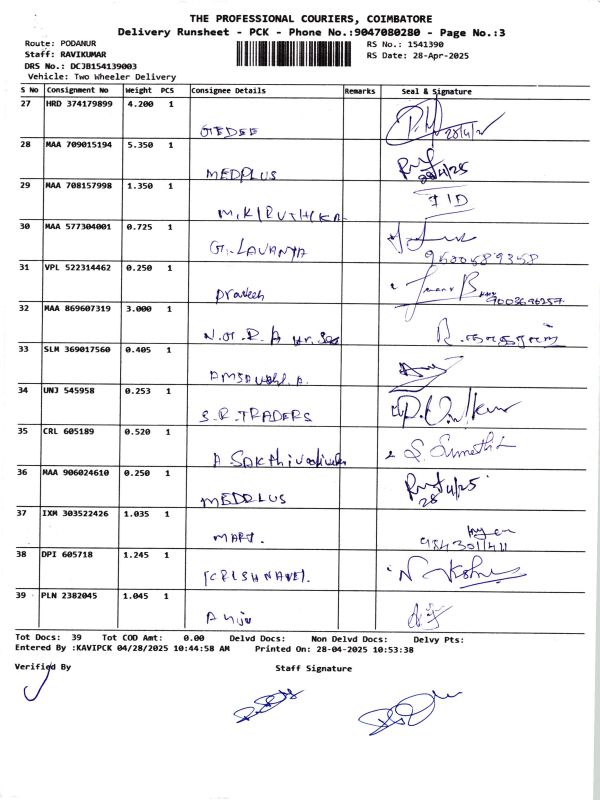 THE PROFESSIONAL COURIERS, COIMBATORE
Delivery Runsheet - PCK - Phone No.:9047080280 - Page No.:3
Route: PODANUR
RS No.: 1541390
Staff: RAVIKUMAR
RS Date: 28-Apr-2025
DRS No.: DCJB154139003
Vehicle: Two Wheeler Delivery
S No Consignment No Weight PCS Consignee Details Remarks Seal & Signature
27 HRD 374179899 4.200 1
GEDEE 28/4/25
28 MAA 709015194 5.350 1
MEDPLUS 28/4/25
29 MAA 708157998 1.350 1
M. KIRUTHIKA
30 MAA 577304001 0.725 1
G. LAVANYA
31 VPL 522314462 0.250 1
Praveen
32 MAA 869607319 3.000 1
N.G.R. A Hr. Sec
33 SLM 369017560 0.405 1
34 UNJ 545958 0.253 1
S.R. TRADERS
35 CRL 605189 0.520 1
A Sakthivadivelu S. Sumathi
36 MAA 906024610 0.250 1
MEDPLUS 28/4/25
37 IXM 303522426 1.035 1
MART.
38 DPI 605718 1.245 1
39 PLN 2382045 1.045 1
Tot Docs: 39 Tot COD Amt: 0.00 Delvd Docs: Non Delvd Docs: Delvy Pts:
Entered By :KAVIPCK 04/28/2025 10:44:58 AM Printed On: 28-04-2025 10:53:38
Verified By Staff Signature